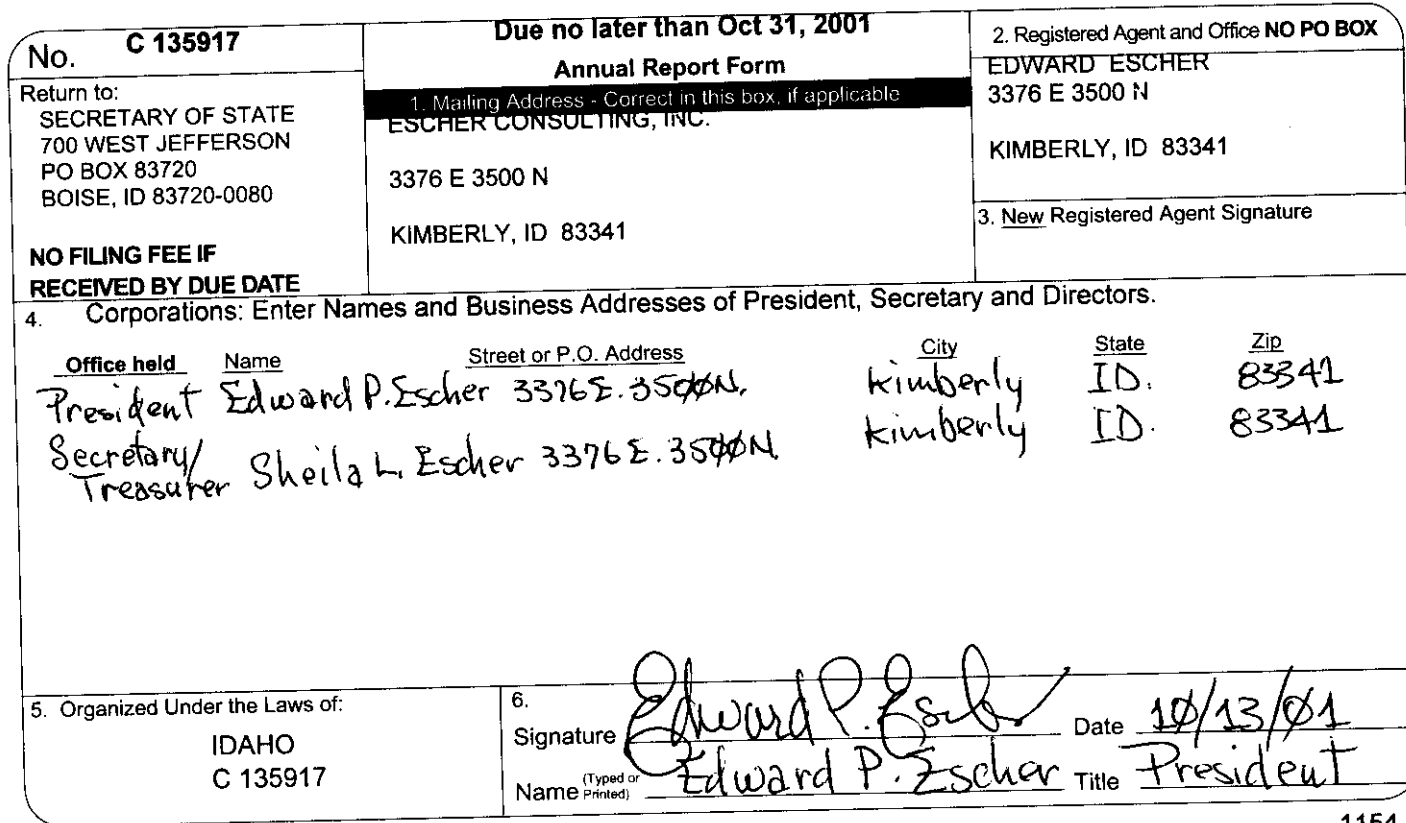 No. C 135917
Return to:
SECRETARY OF STATE
700 WEST JEFFERSON
PO BOX 83720
BOISE, ID 83720-0080
NO FILING FEE IF
RECEIVED BY DUE DATE
Due no later than Oct 31, 2001
Annual Report Form
1. Mailing Address - Correct in this box, if applicable
ESCHER CONSULTING, INC.
3376 E 3500 N
KIMBERLY, ID 83341
2. Registered Agent and Office NO PO BOX
EDWARD ESCHER
3376 E 3500 N
KIMBERLY, ID 83341
3. New Registered Agent Signature
4. Corporations: Enter Names and Business Addresses of President, Secretary and Directors.
Office held Name Street or P.O. Address City State Zip
President Edward P. Escher 3376 E. 3500 N. Kimberly ID. 83341
Secretary/ Treasurer Sheila L. Escher 3376 E. 3500 N. Kimberly ID. 83341
5. Organized Under the Laws of:
IDAHO
C 135917
6.
Signature Edward P. Escher Date 10/13/01
Name (Typed or Printed) Edward P. Escher Title President
1154